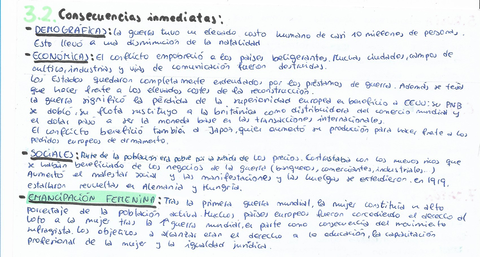 3.2. Consecuencias inmediatas:
- DEMOGRÁFICAS: la guerra tuvo un elevado costo humano de casi 10 millones de personas.
Esto llevó a una disminución de la natalidad
- ECONÓMICAS: El conflicto empobreció a los países beligerantes, muchas ciudades, campos de
cultivo, industrias y vías de comunicación fueron destruidas.
Los Estados quedaron completamente endeudados por los préstamos de guerra. Además se tenía
que hacer frente a los elevados costes de la reconstrucción.
La guerra significó la pérdida de la superioridad europea en beneficio a EEUU: su PNB
se dobló, su flota sustituyó a la británica como distribuidora del comercio mundial y
el dólar pasó a ser la moneda base en las transacciones internacionales.
El conflicto benefició también a Japón, quien aumentó su producción para hacer frente a los
pedidos europeos de armamento.
- SOCIALES: Parte de la población era pobre por la subida de los precios. Contrastaba con los nuevos ricos que
se habían beneficiado de los negocios de la guerra (banqueros, comerciantes, industriales.)
Aumentó el malestar social y las manifestaciones y las huelgas se extendieron. en 1919
estallaron revueltas en Alemania y Hungría.
- EMANCIPACIÓN FEMENINA: Tras la primera guerra mundial, la mujer constituía un alto
porcentaje de la población activa. Muchos países europeos fueron concediendo el derecho al
voto a la mujer tras la 1ª guerra mundial, en parte como consecuencia del movimiento
sufragista. Los objetivos a alcanzar eran el derecho a la educación, la capacitación
profesional de la mujer y la igualdad jurídica.